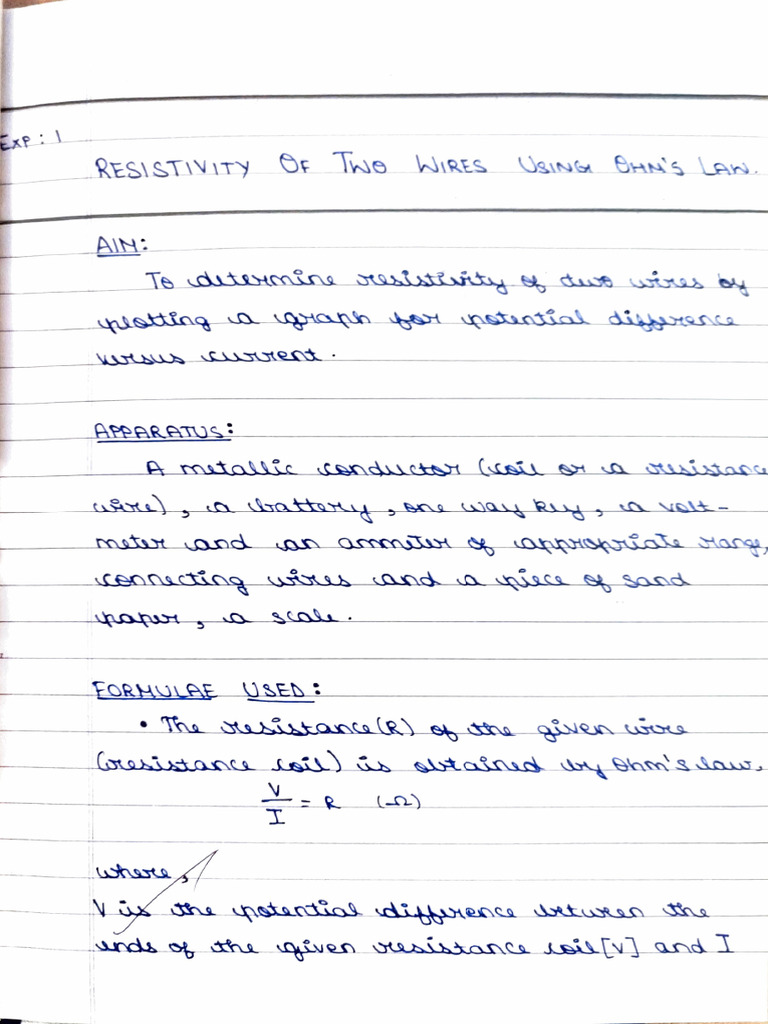 Exp: 1
RESISTIVITY OF TWO WIRES USING OHM'S LAW.
AIM:
To determine resistivity of two wires by
plotting a graph for potential difference
versus current.
APPARATUS:
A metallic conductor (coil or a resistance
wire), a battery, one way key, a volt-
meter and an ammiter of appropriate range,
connecting wires and a piece of sand
paper, a scale.
FORMULAE USED:
• The resistance(R) of the given wire
(resistance coil) is obtained by Ohm's law.
V/I = R (Ω)
where,
V is the potential difference between the
ends of the given resistance coil[V] and I